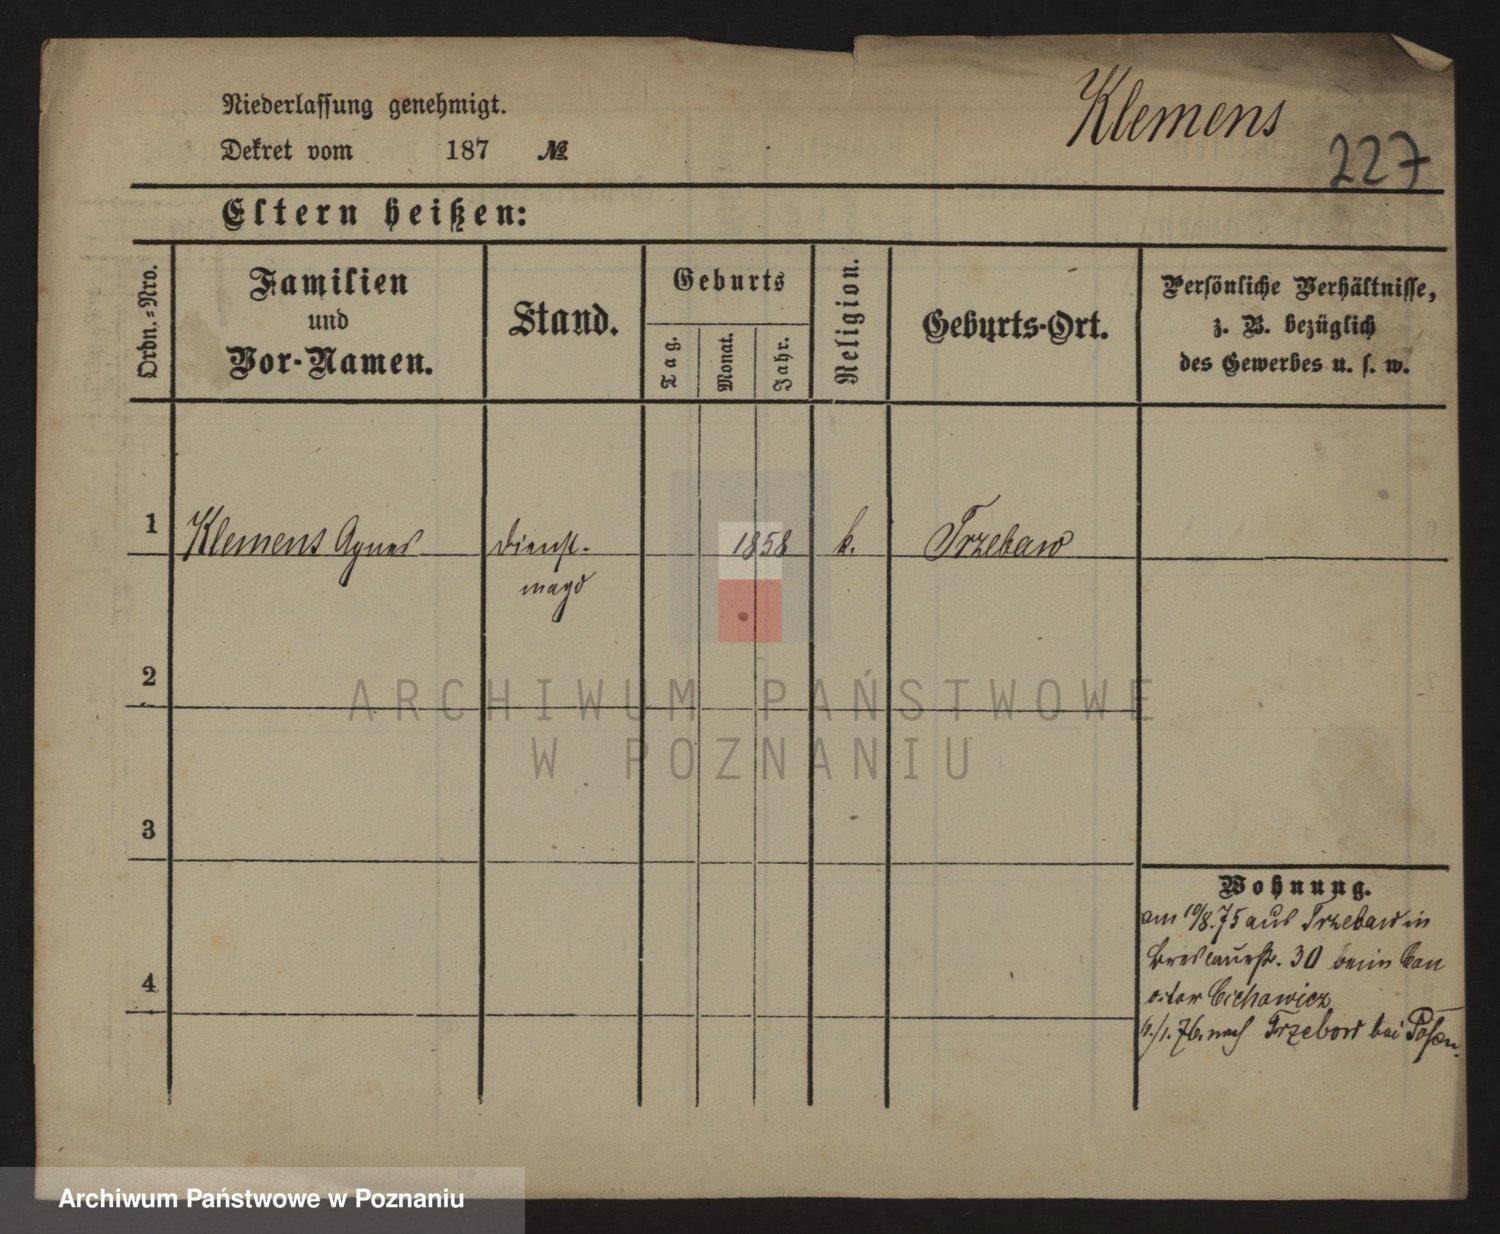 Niederlassung genehmigt.
Dekret vom 187 №
Klemens
227
Eltern heißen:
Ordn.-Nro.
Familien
und
Vor-Namen.
Stand.
Geburts
Tag.
Monat.
Jahr.
Religion.
Geburts-Ort.
Persönliche Verhältnisse,
z. B. bezüglich
des Gewerbes u. s. w.
1
Klemens Agnes
Dienst-
magd
1858
k.
Trzebaw
2
3
4
ARCHIWUM PAŃSTWOWE
W POZNANIU
Wohnung.
am 10/8.75 aus Trzebaw in
Breslauerstr. 30 beim
Cichowicz
6./1.76. nach Trzebow bei Posen.
Archiwum Państwowe w Poznaniu